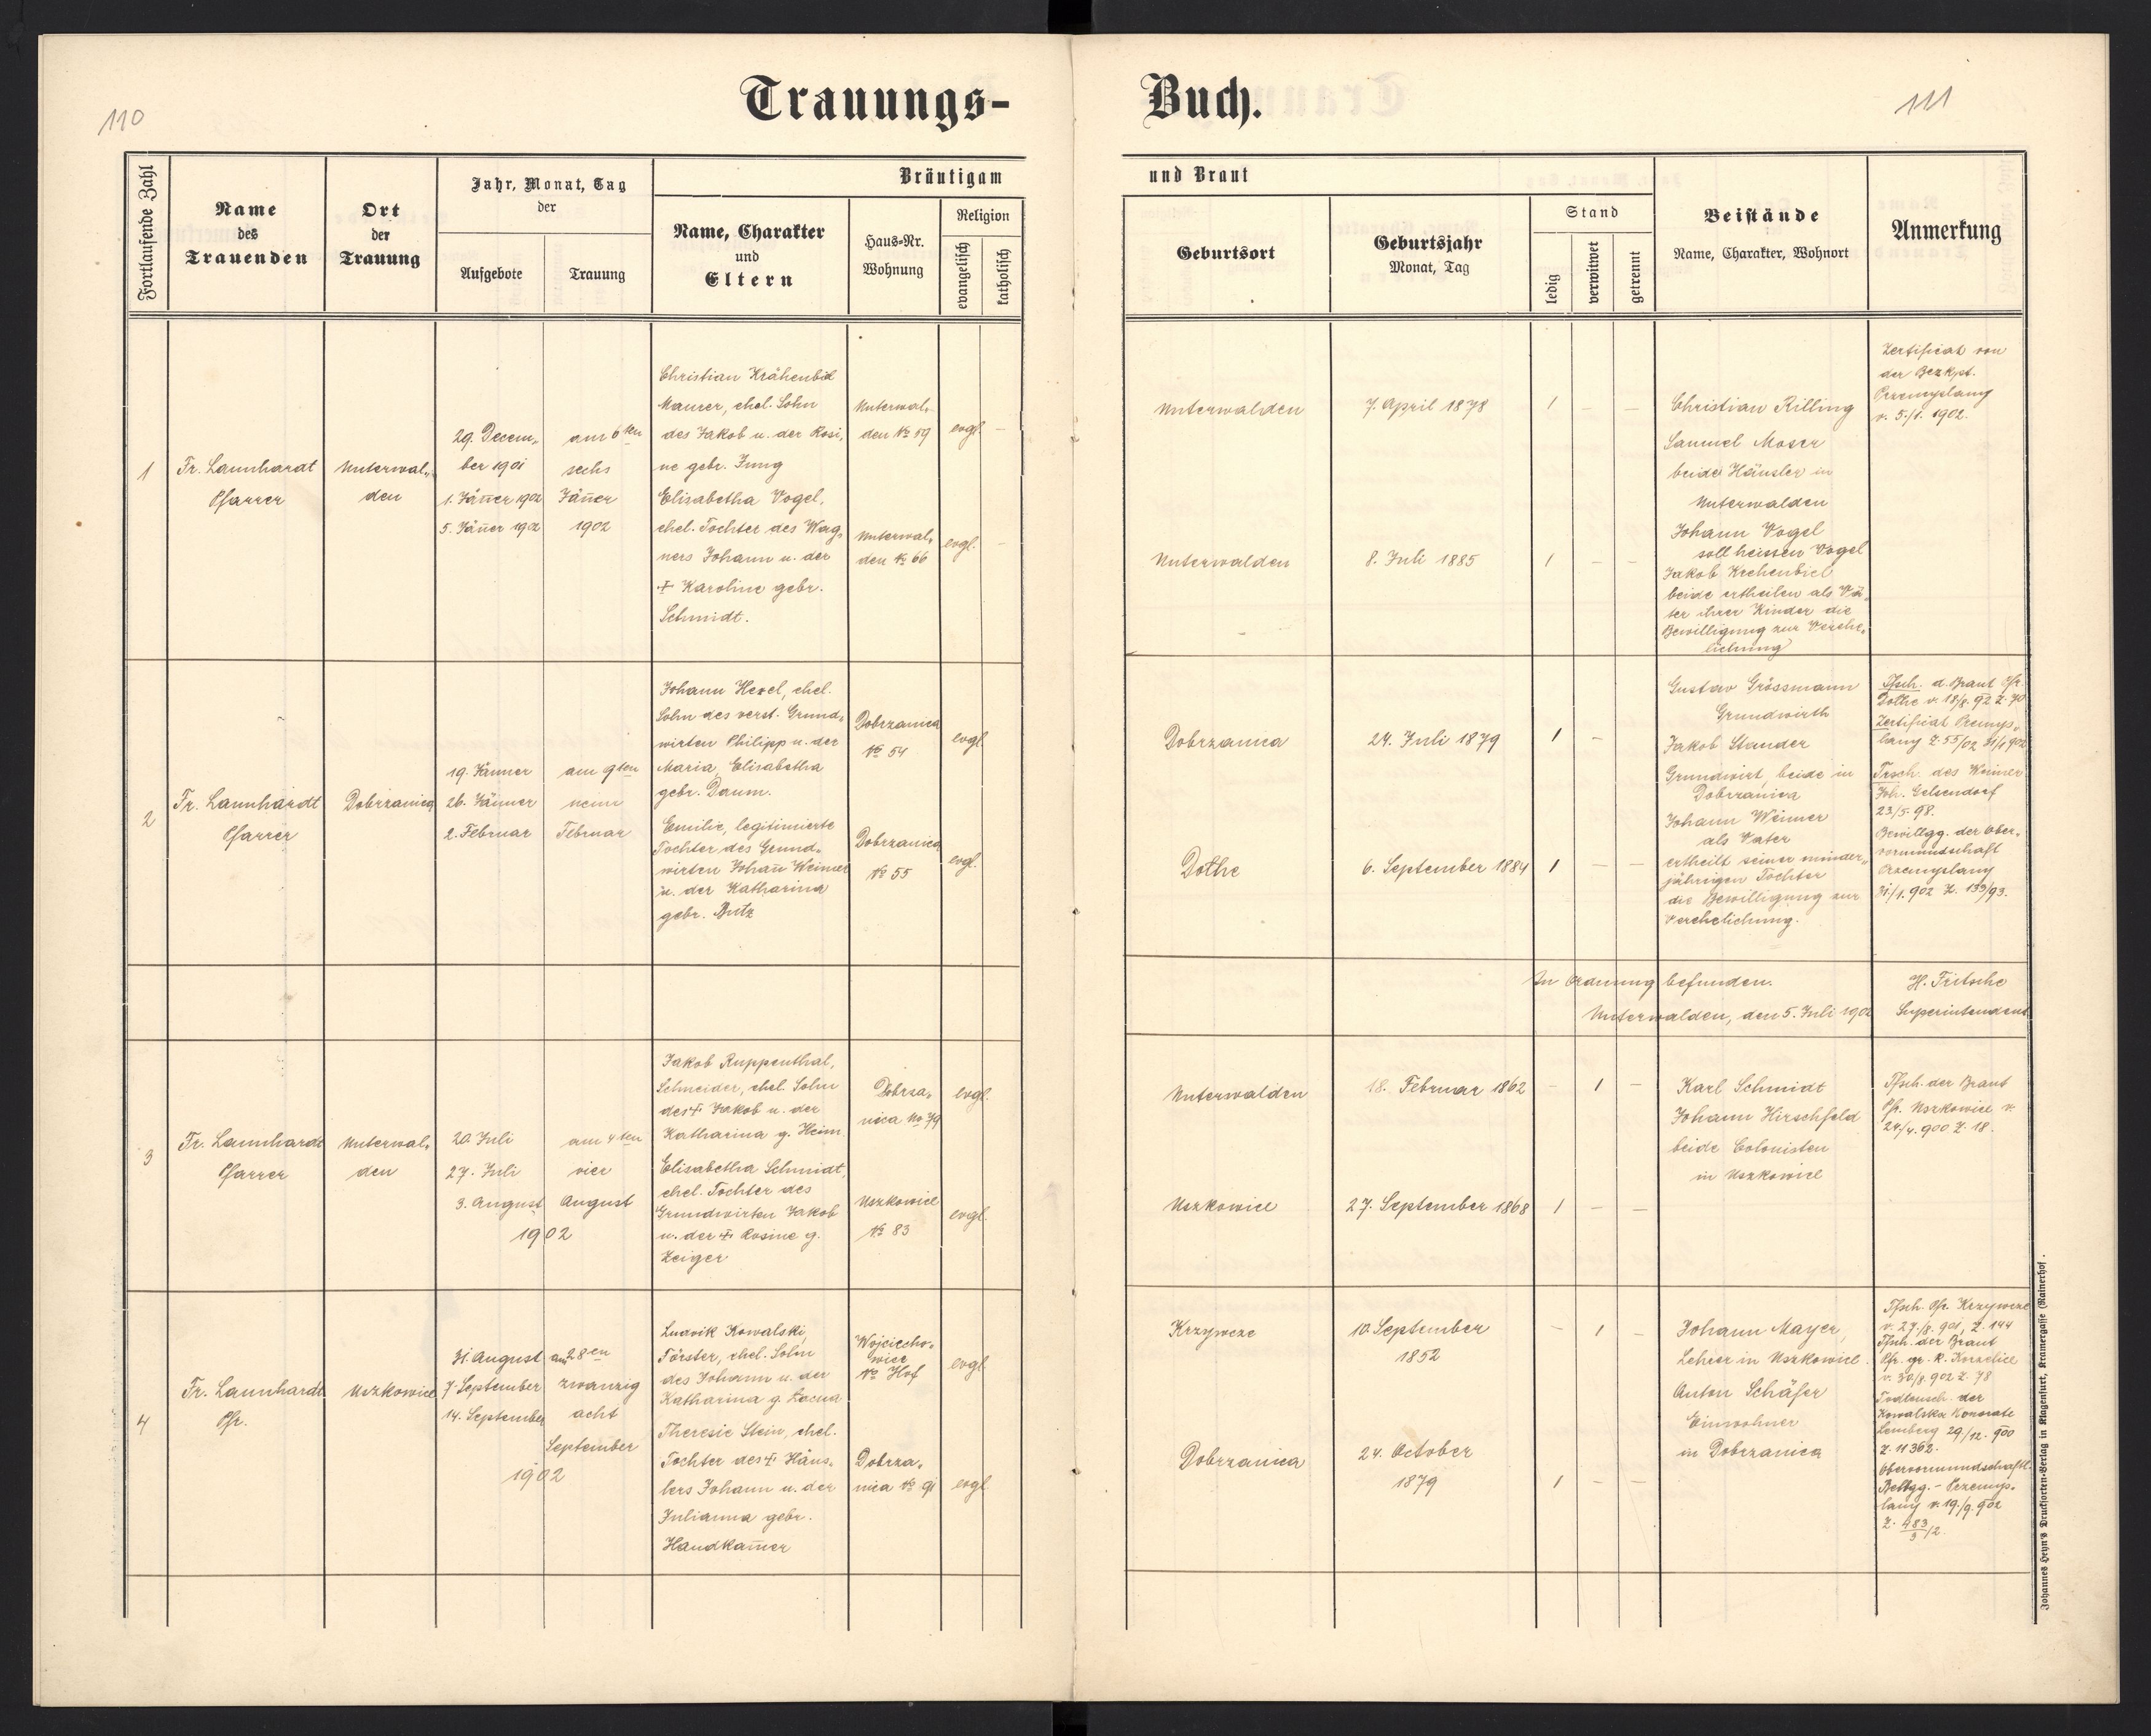 110
Trauungs-
Buch.
111
Fortlaufende Zahl
Name
des
Trauenden
Ort
der
Trauung
Jahr, Monat, Tag
der
Aufgebote
Trauung
Bräutigam
Name, Charakter
und
Eltern
Haus-Nr.
Wohnung
Religion
evangelisch
katholisch
und Braut
Geburtsort
Geburtsjahr
Monat, Tag
Stand
ledig
verwitwet
getrennt
Beistände
Name, Charakter, Wohnort
Anmerkung
1
Fr. Launhardt
Pfarrer
Unterwal„
den
29. Decem„
ber 1901
1. Jäner 1902
5. Jäner 1902
am 6ten
sechs
Jäner
1902
Christian Krähenbil
Maurer, ehel. Sohn
des Jakob u. der Rosi„
ne gebr. Jung
Elisabetha Vogel,
ehel. Tochter des Wag„
ners Johann u. der
‡ Karoline gebr.
Schmidt.
Unterwal„
den No 59
Unterwal„
den No 66
evgl. –
evgl. –
Unterwalden
7. April 1878
1 – –
Unterwalden
8. Juli 1885
1 – –
Christian Rilling
Samuel Moser
beide Häusler in
Unterwalden
Johann Vogel
soll heissen Vogel
Jakob Krehenbiel
beide ertheilen als Vä„
ter ihrer Kinder die
Bewilligung zur Verehe„
lichung
Zertificat von
der Bezkpt.
Przemyslany
v. 5./1. 1902.
2
Fr. Launhardt
Pfarrer
Dobrzanica
19. Jänner
26. Jänner
2. Februar
am 9ten
neun
Februar
Johann Hexel, ehel.
Sohn des verst. Grund„
wirten Philipp u. der
Maria Elisabetha
gebr. Daum.
Emilie, legitimierte
Tochter des Grund„
wirten Johan Weimer
u. der Katharina
gebr. Butz
Dobrzanica
No 54
Dobrzanica
No 55
evgl.
evgl.
Dobrzanica
24. Juli 1879
1 –
Dothe
6. September 1884
1 – –
Gustav Grössmann
Grundwirth
Jakob Stauder
Grundwirt, beide in
Dobrzanica
Johann Weimer
als Vater
ertheilt seiner minder„
jährigen Tochter
die Bewilligung zur
Verehelichung.
Tfsch. d. Braut Pfr.
Dothe v. 18/8. 92 Z. 70
Zertifiat Przmys„
lany Z. 55/02 31/1 902
Trsch. des Weimer
Joh. Gelsendorf
23/5. 98.
Bewillgg. der Ober„
vormundschaft
Przemyslany
31/1. 902 Z. 133/93.
In Ordnung befunden.
Unterwalden, den 5. Juli 1902
H. Fritsche
Superintendent
3
Fr. Launhardt
Pfarrer
Unterwal„
den
20. Juli
27. Juli
3. August
am 4ten
vier
August
1902
Jakob Ruppenthal,
Schneider, ehel. Sohn
des ‡ Jakob u. der
Katharina g. Heim
Elisabetha Schmidt,
ehel. Tochter des
Grundwirten Jakob
u. der ‡ Rosine g.
Zeiger
Dobrza„
nica No 79
Uszkowice
No 83
evgl.
evgl.
Unterwalden
18. Februar 1862
– 1 –
Uszkowice
27. September 1868
1 – –
Karl Schmidt
Johann Hirschfeld
beide Colonisten
in Uszkowice
Tfsch. der Braut
Pfr. Uszkowice v.
24/4. 900 Z. 18.
4
Fr. Launhardt
Pfr.
Uszkowice
31. August
7. September
14. September
am 28en
zwanzig
acht
September
1902
Ludvik Kowalski,
Förster, ehel. Sohn
des Johann u. der
Katharina g. Lacna
Theresie Stein, ehel.
Tochter des ‡ Häus„
lers Johann u. der
Julianna gebr.
Handkamer
Wojciecho„
wice
No Hof
Dobrza„
nica No 91
evgl.
evgl.
Krzywcze
10. September
1852
– 1 –
Dobrzanica
24. October
1879
1 – –
Johann Mayer,
Lehrer in Uszkowice.
Anton Schäfer
Einwohner
in Dobrzanica
Tfsch. Pfr. Krzywcze
v. 27/8. 901, Z. 144
Tfsch. der Braut
Pfr. gr. k. Korzelice
v. 30/8. 902 Z. 78
Todtensch. der
Kowalska Honorate
Lemberg 29/12. 900
Z. 11362.
Obervormundschaftl.
Bellgg. – Przemys„
lany v. 19./9. 902
Z. 483/3 /2.
Johannes Heyn's Drucksorten-Verlag in Klagenfurt, Kramergasse (Rainerhof.